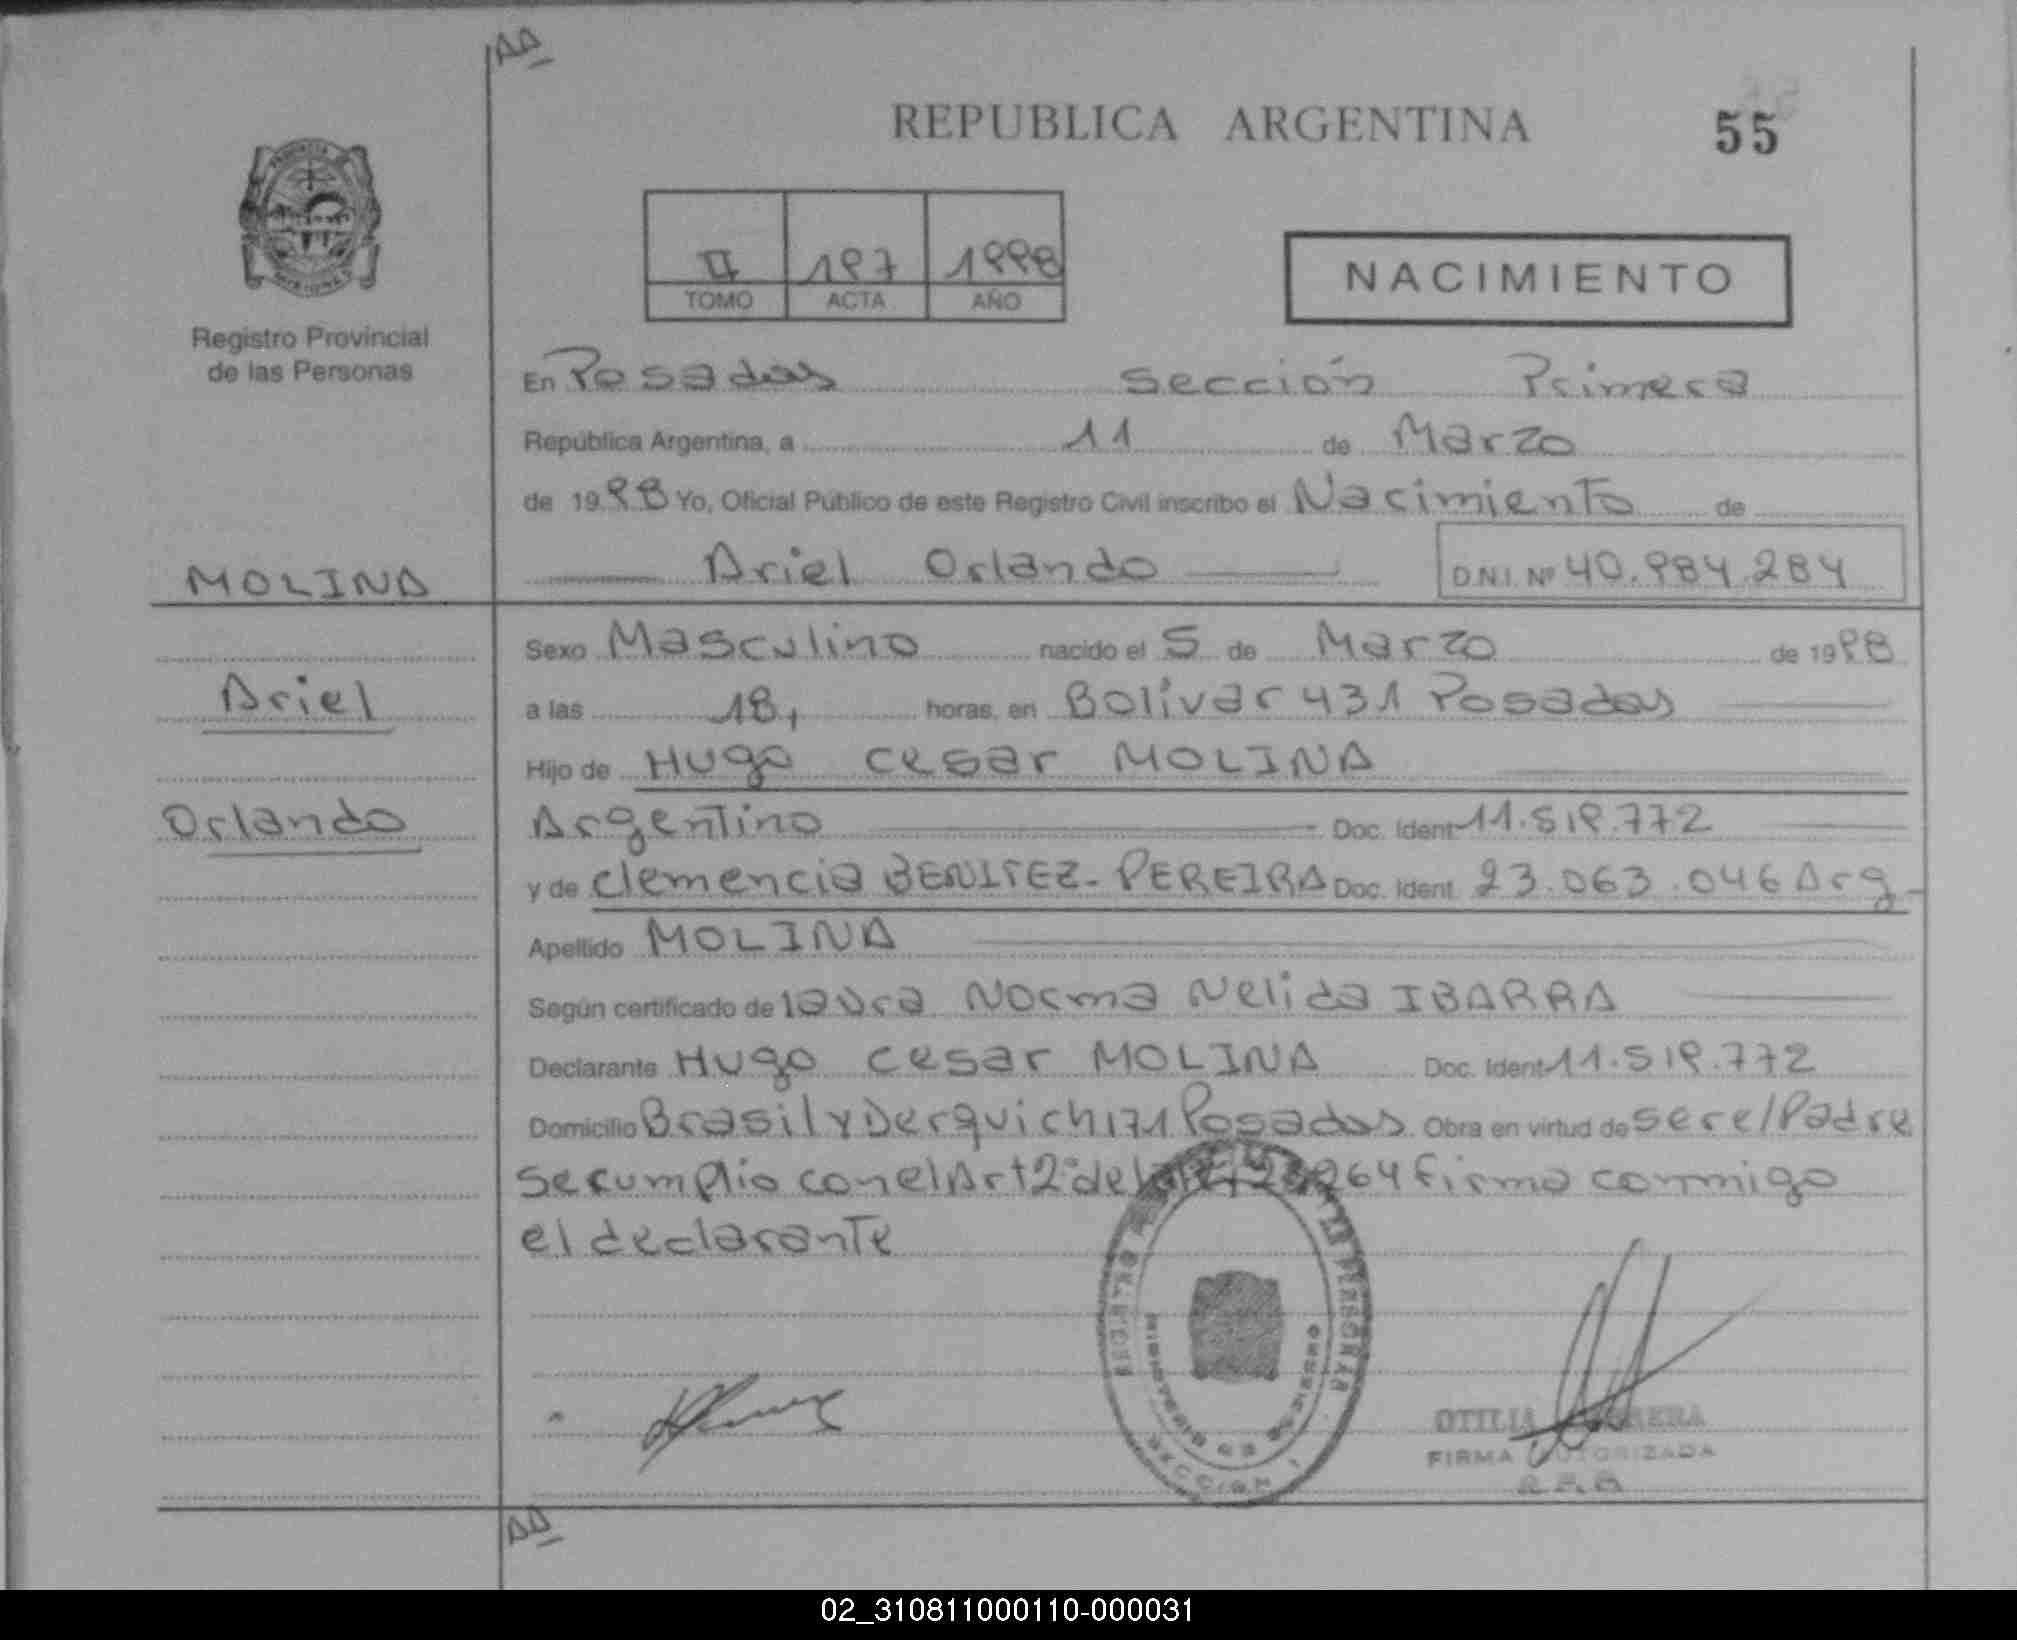 AA
REPUBLICA ARGENTINA 55
II 197 1998
TOMO ACTA AÑO
NACIMIENTO
Registro Provincial
de las Personas
En Posadas Sección Primera
República Argentina, a 11 de Marzo
de 1998 Yo, Oficial Público de este Registro Civil inscribo el Nacimiento de
MOLINA
Ariel Orlando D.N.I. Nº 40.984.284
Sexo Masculino nacido el 5 de Marzo de 1998
Ariel
a las 18, horas, en Bolívar 431 Posadas
Hijo de Hugo Cesar MOLINA
Orlando
Argentino Doc. Ident 11.519.772
y de Clemencia BENITEZ-PEREIRA Doc. Ident. 23.063.046 Arg-
Apellido MOLINA
Según certificado de la Dra Norma Nelida IBARRA
Declarante Hugo Cesar MOLINA Doc. Ident 11.519.772
Domicilio Brasil y Derqui ch 171 Posadas Obra en virtud de ser el Padre
se cumplio con el Art 2º de 264 firma conmigo
el declarante
SECCION 1
OTILIA
FIRMA AUTORIZADA
AA
02_310811000110-000031